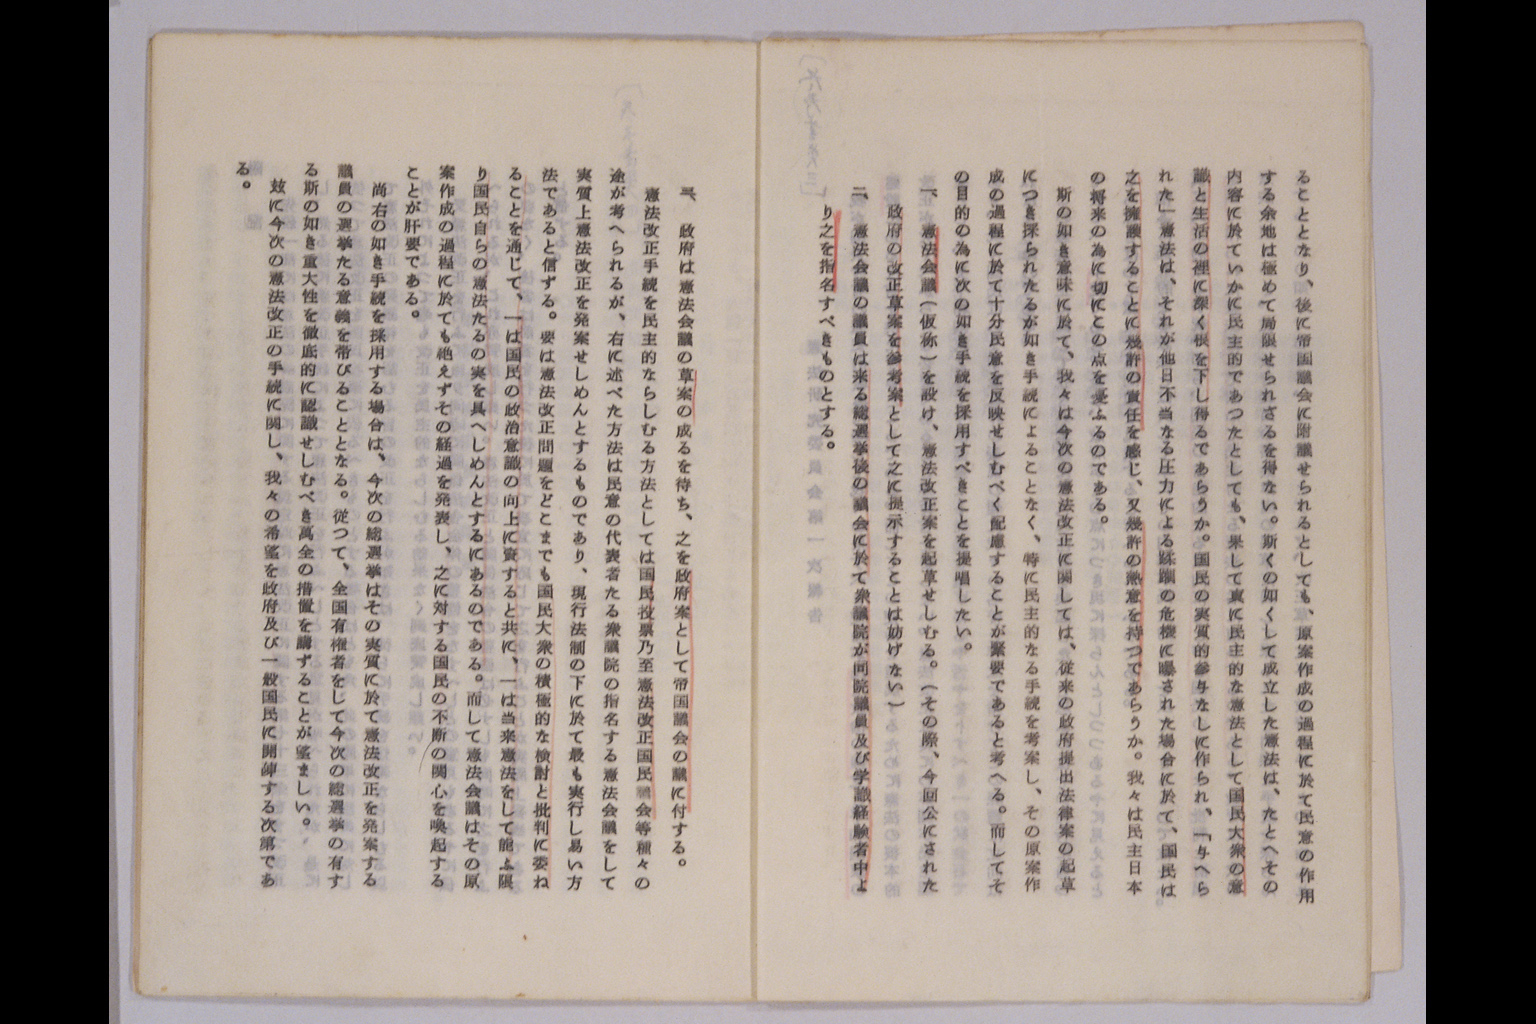 ることとなり、後に帝国議会に附議せられるとしても、原案作成の過程に於て民意の作用
する余地は極めて局限せられざるを得ない。斯くの如くして成立した憲法は、たとへその
内容に於ていかに民主的であつたとしても、果して真に民主的な憲法として国民大衆の意
識と生活の裡に深く根を下し得るであらうか。国民の実質的参与なしに作られ、「与へら
れた」憲法は、それが他日不当なる圧力による蹂躙の危機に曝された場合に於て、国民は
之を擁護することに幾許の責任を感じ、又幾許の熱意を持つであらうか。我々は民主日本
の将来の為に切にこの点を憂ふるのである。
斯の如き意味に於て、我々は今次の憲法改正に関しては、従来の政府提出法律案の起草
につき採られたるが如き手続によることなく、特に民主的なる手続を考案し、その原案作
成の過程に於て十分民意を反映せしむべく配慮することが緊要であると考へる。而してそ
の目的の為に次の如き手続を採用すべきことを提唱したい。
一、憲法会議(仮称)を設け、憲法改正案を起草せしむる。(その際、今回公にされた
政府の改正草案を参考案として之に提示することは妨げない)
二、憲法会議の議員は来る総選挙後の議会に於て衆議院が同院議員及び学識経験者中よ
り之を指名すべきものとする。
三、政府は憲法会議の草案の成るを待ち、之を政府案として帝国議会の議に付する。
憲法改正手続を民主的ならしむる方法としては国民投票乃至憲法改正国民議会等種々の
途が考へられるが、右に述べた方法は民意の代表者たる衆議院の指名する憲法会議をして
実質上憲法改正を発案せしめんとするものであり、現行法制の下に於て最も実行し易い方
法であると信ずる。要は憲法改正問題をどこまでも国民大衆の積極的な検討と批判に委ね
ることを通じて、一は国民の政治意識の向上に資すると共に、一は当来憲法をして能ふ限
り国民自らの憲法たるの実を具へしめんとするにあるのである。而して憲法会議はその原
案作成の過程に於ても絶えずその経過を発表し、之に対する国民の不断の関心を喚起する
ことが肝要である。
尚右の如き手続を採用する場合は、今次の総選挙はその実質に於て憲法改正を発案する
議員の選挙たる意義を帯びることとなる。従つて、全国有権者をして今次の総選挙の有す
る斯の如き重大性を徹底的に認識せしむべき萬全の措置を講ずることが望ましい。
玆に今次の憲法改正の手続に関し、我々の希望を政府及び一般国民に開陳する次第であ
る。